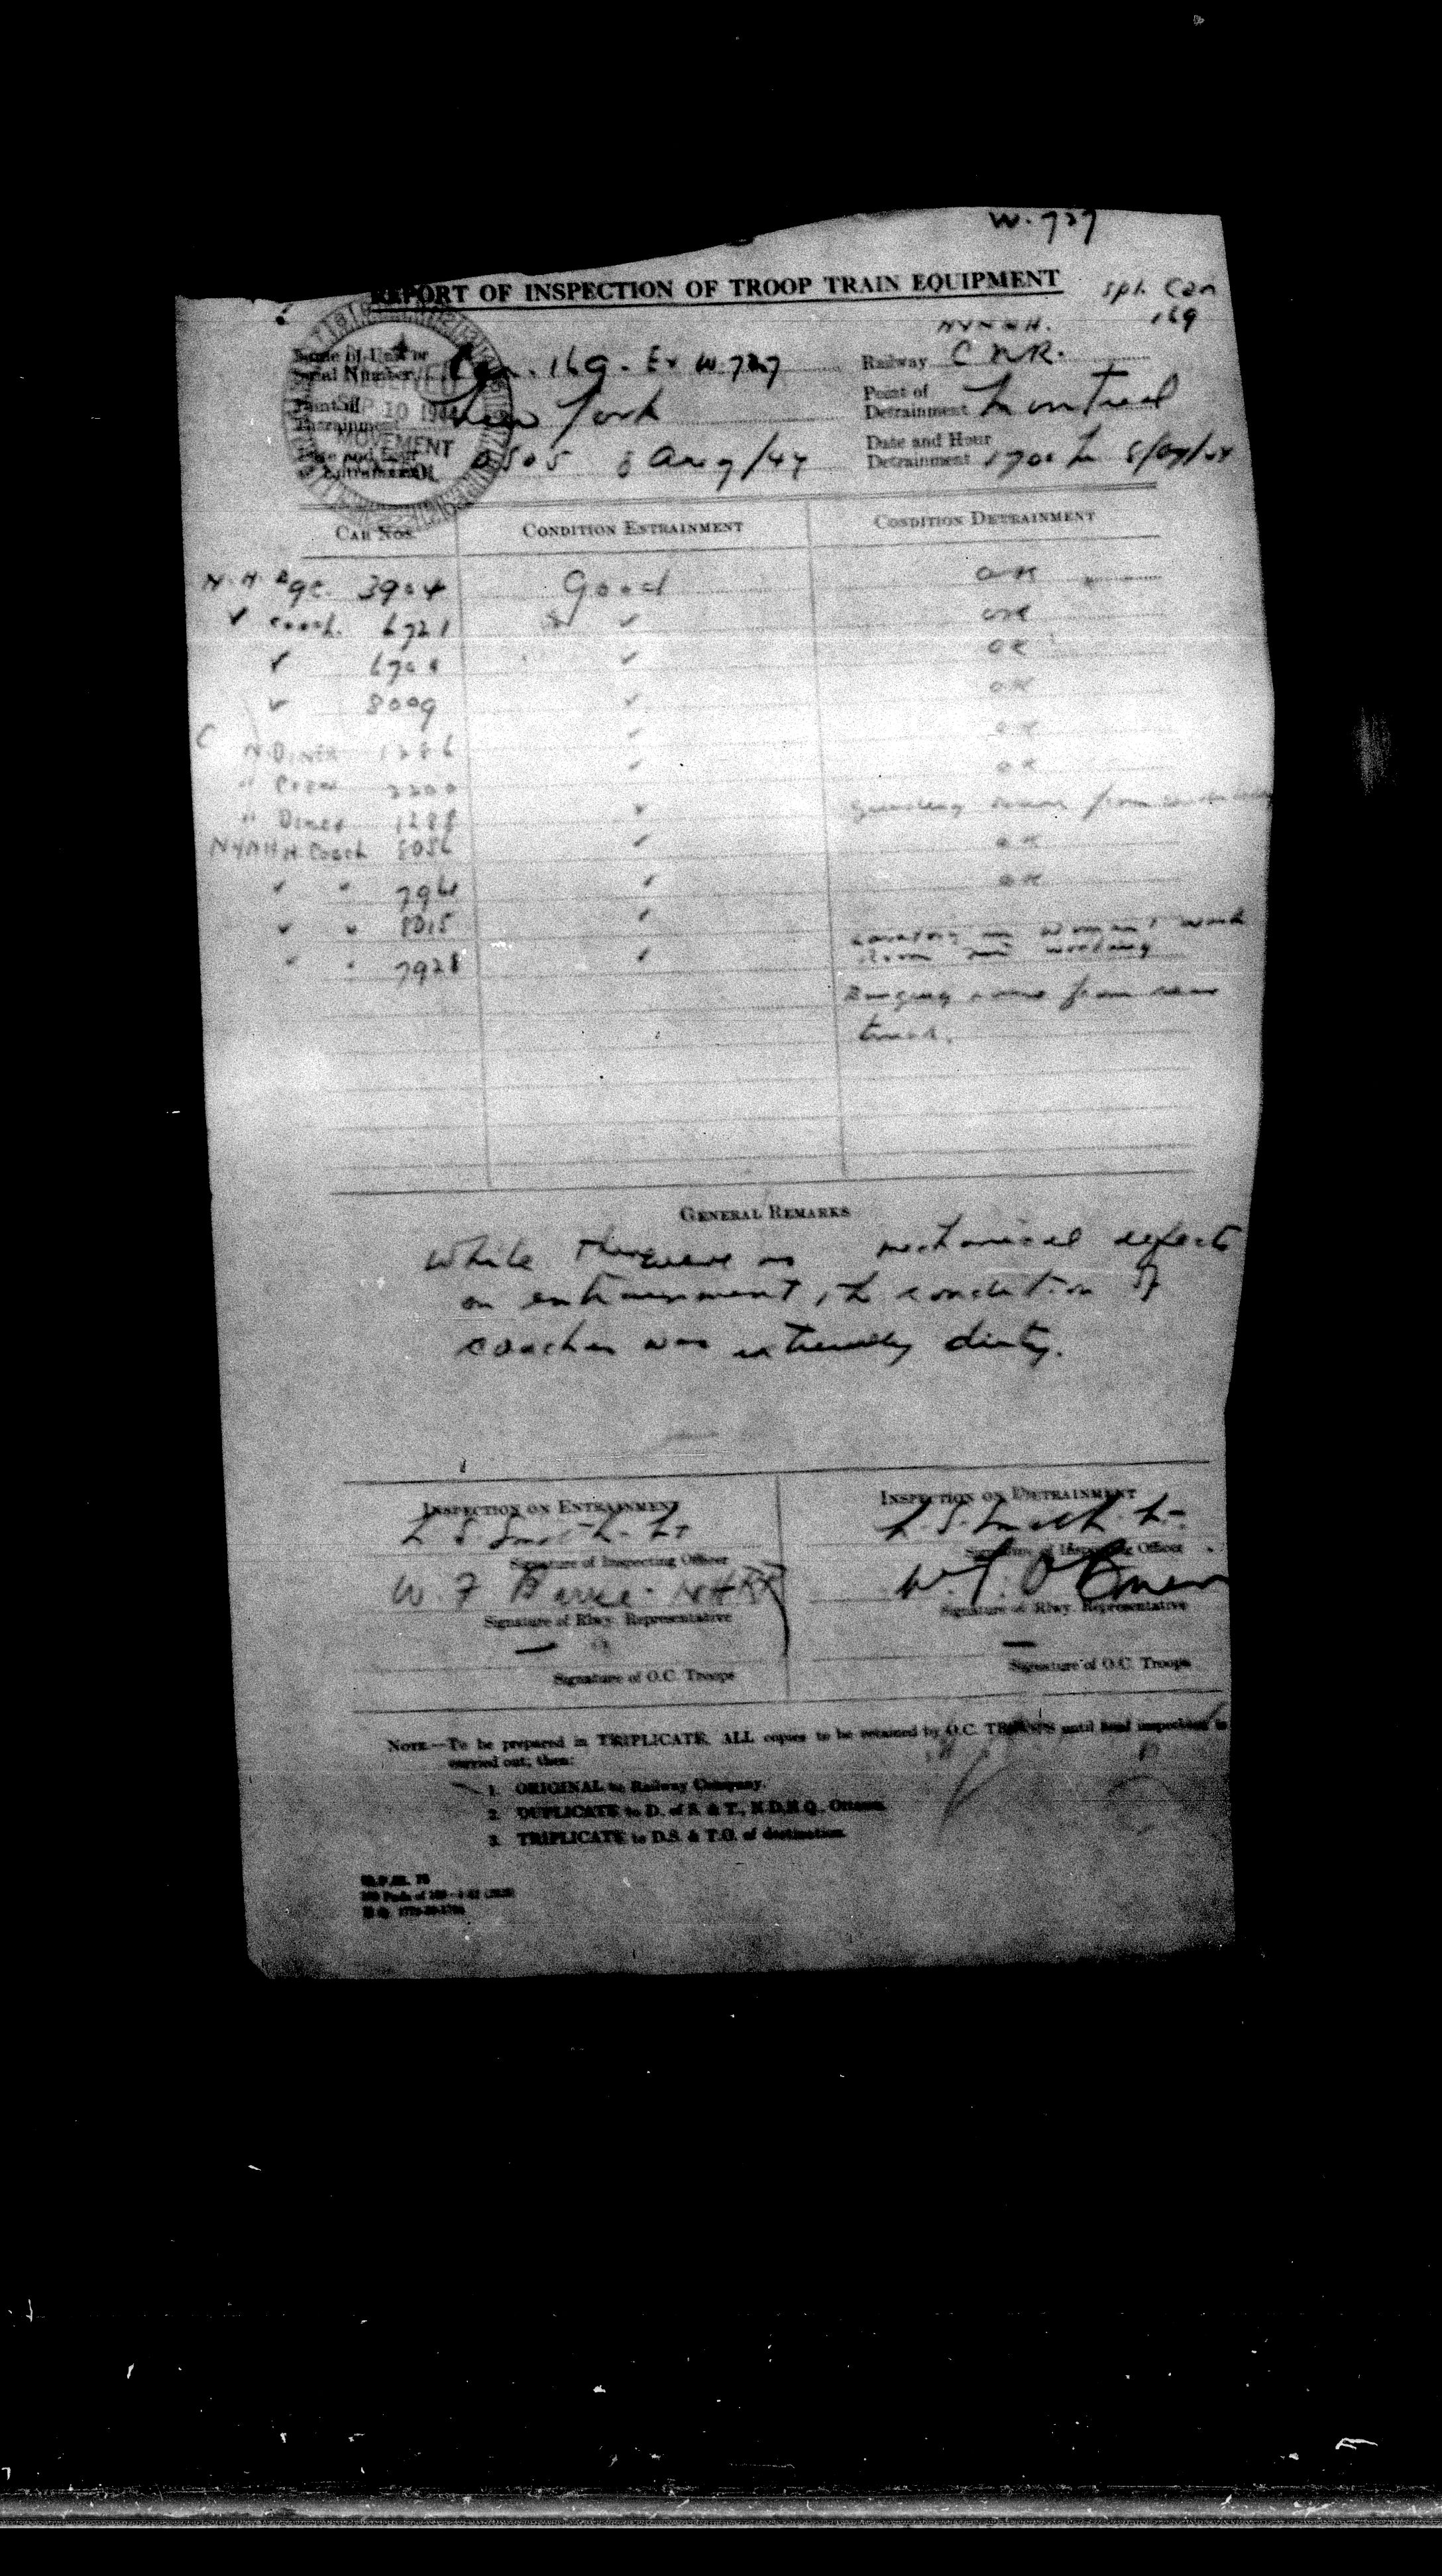 W. 727
REPORT OF INSPECTION OF TROOP TRAIN EQUIPMENT
Spl. Can
169
NYNHH.
Name of Unit or
Serial Number Can. 169. Ex W. 727
Railway CNR.
Point of
Entrainment New York
Point of
Detrainment Montreal
SEP 10 1944
MOVEMENT
Date and Hour
Entrainment 0505 8 Aug/44
Date and Hour
Detrainment 1700 h 8/Aug/44
CAR NOS. CONDITION ENTRAINMENT CONDITION DETRAINMENT
N.H. Bge. 3904 Good OK
✓ coach. 6721 ✓ OK
✓ ✓ OK
✓ 8009 ✓ OK
C N. Diner 1286 ✓ OK
" 2200 ✓ OK
" Diner 1288 ✓ from
NYNHH Coach 8056 ✓ OK
✓ ✓ ✓ OK
✓ ✓ 8015 ✓ Lavatory in woman's wash
room not working
" " 7928 ✓
noise from rear
truck.
GENERAL REMARKS
While there were no mechanical defects
on entrainment, the condition of
coaches was extremely dirty.
INSPECTION ON ENTRAINMENT INSPECTION ON DETRAINMENT
L S Smith Lt L. S. Smith Lt
Signature of Inspecting Officer Signature of Inspecting Officer
W. F NHRR W. J. O'Brien
Signature of Rlwy. Representative Signature of Rlwy. Representative
— —
Signature of O.C. Troops Signature of O.C. Troops
NOTE—To be prepared in TRIPLICATE, ALL copies to be retained by O.C. TROOPS until final inspection is
carried out; then:
1. ORIGINAL to Railway Company.
2. DUPLICATE to D. of S. & T., N.D.H.Q., Ottawa.
3. TRIPLICATE to D.S. & T.O. of destination.